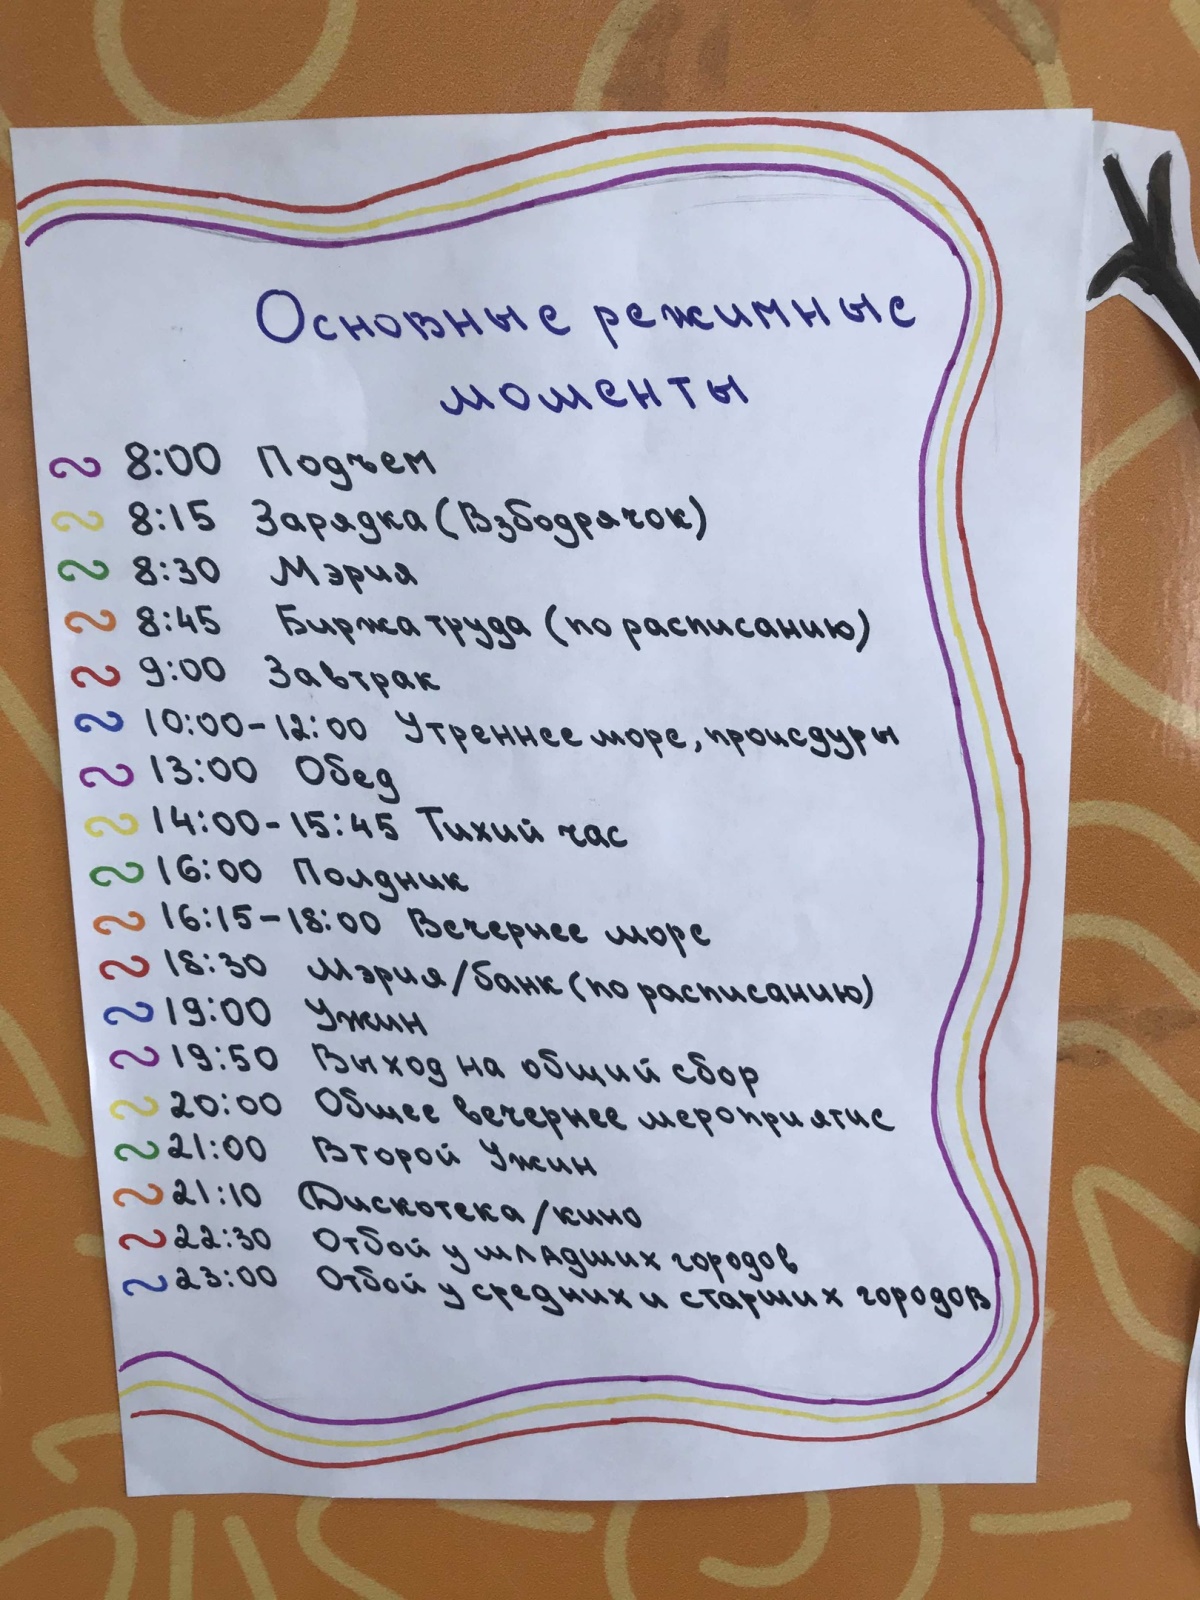 Основные режимные
моменты
8:00 Подъем
8:15 Зарядка (Взбодрячок)
8:30 Мэрия
8:45 Биржа труда (по расписанию)
9:00 Завтрак
10:00-12:00 Утреннее море, процедуры
13:00 Обед
14:00-15:45 Тихий час
16:00 Полдник
16:15-18:00 Вечернее море
18:30 Мэрия/банк (по расписанию)
19:00 Ужин
19:50 Выход на общий сбор
20:00 Общее вечернее мероприятие
21:00 Второй Ужин
21:10 Дискотека/кино
22:30 Отбой у младших городов
23:00 Отбой у средних и старших городов